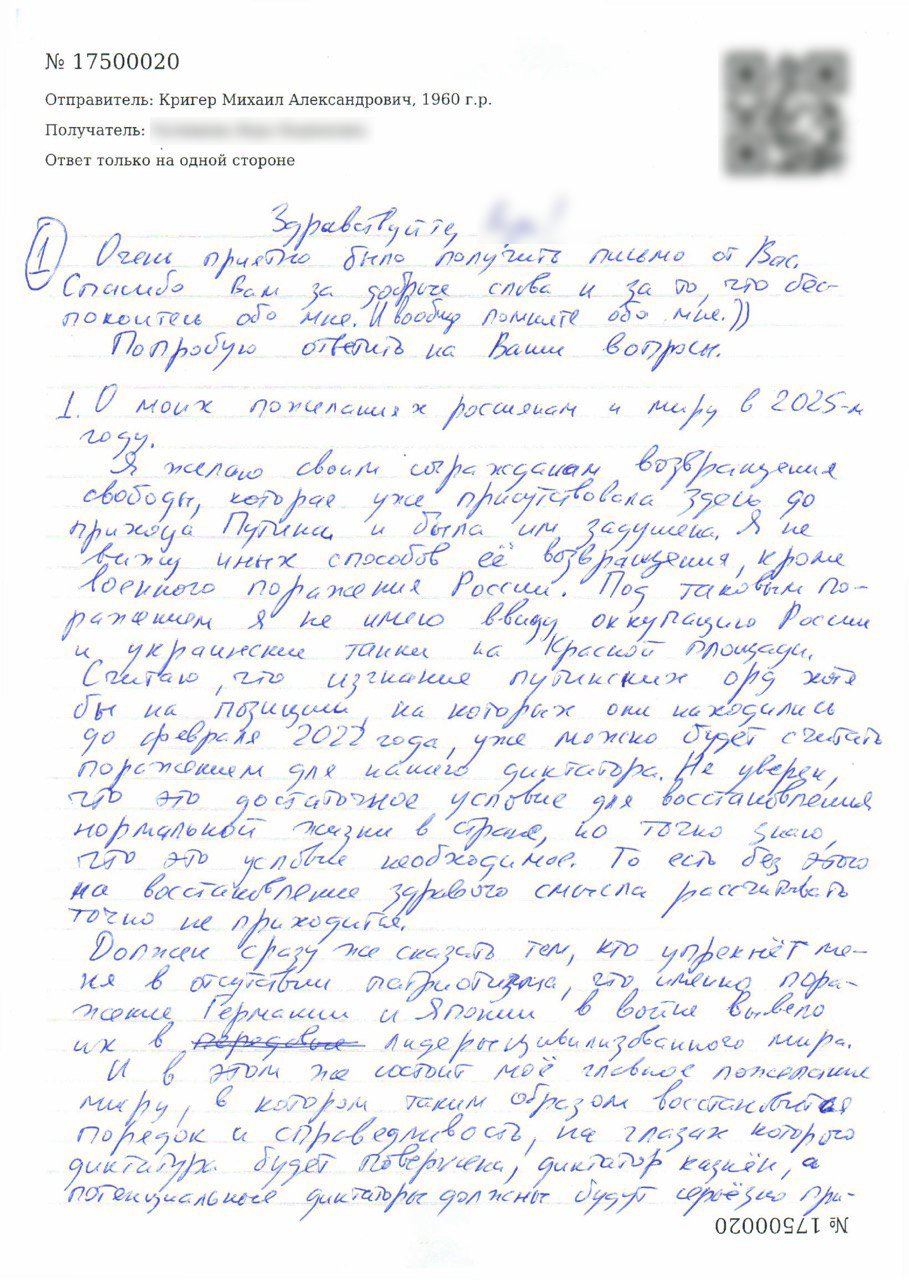 № 17500020
Отправитель: Кригер Михаил Александрович, 1960 г.р.
Получатель:
Ответ только на одной стороне
Здравствуйте,
1 Очень приятно было получить письмо от Вас.
Спасибо Вам за добрые слова и за то, что бес-
покоитесь обо мне. И вообще помните обо мне.))
Попробую ответить на Ваши вопросы.
1. О моих пожеланиях россиянам и миру в 2025-м
году.
Я желаю своим согражданам возвращения
свободы, которая уже присутствовала здесь до
прихода Путина и была им задушена. Я не
вижу иных способов её возвращения, кроме
военного поражения России. Под таковым по-
ражением я не имею ввиду оккупацию России
и украинские танки на Красной площади.
Считаю, что изгнание путинских орд хотя
бы на позиции, на которых они находились
до февраля 2022 года, уже можно будет считать
поражением для нашего диктатора. Не уверен,
что это достаточное условие для восстановления
нормальной жизни в стране, но точно знаю,
что это условие необходимое. То есть без этого
на восстановление здравого смысла рассчитывать
точно не приходится.
Должен сразу же сказать тем, кто упрекнёт ме-
ня в отсутствии патриотизма, что именно пора-
жение Германии и Японии в войне вывело
их в передовые лидеры цивилизованного мира.
И в этом же состоит моё главное пожелание
миру, в котором таким образом восстановится
порядок и справедливость, на глазах которого
диктатура будет повержена, диктатор казнён, а
потенциальные диктаторы должны будут серьёзно при-
№ 17500020